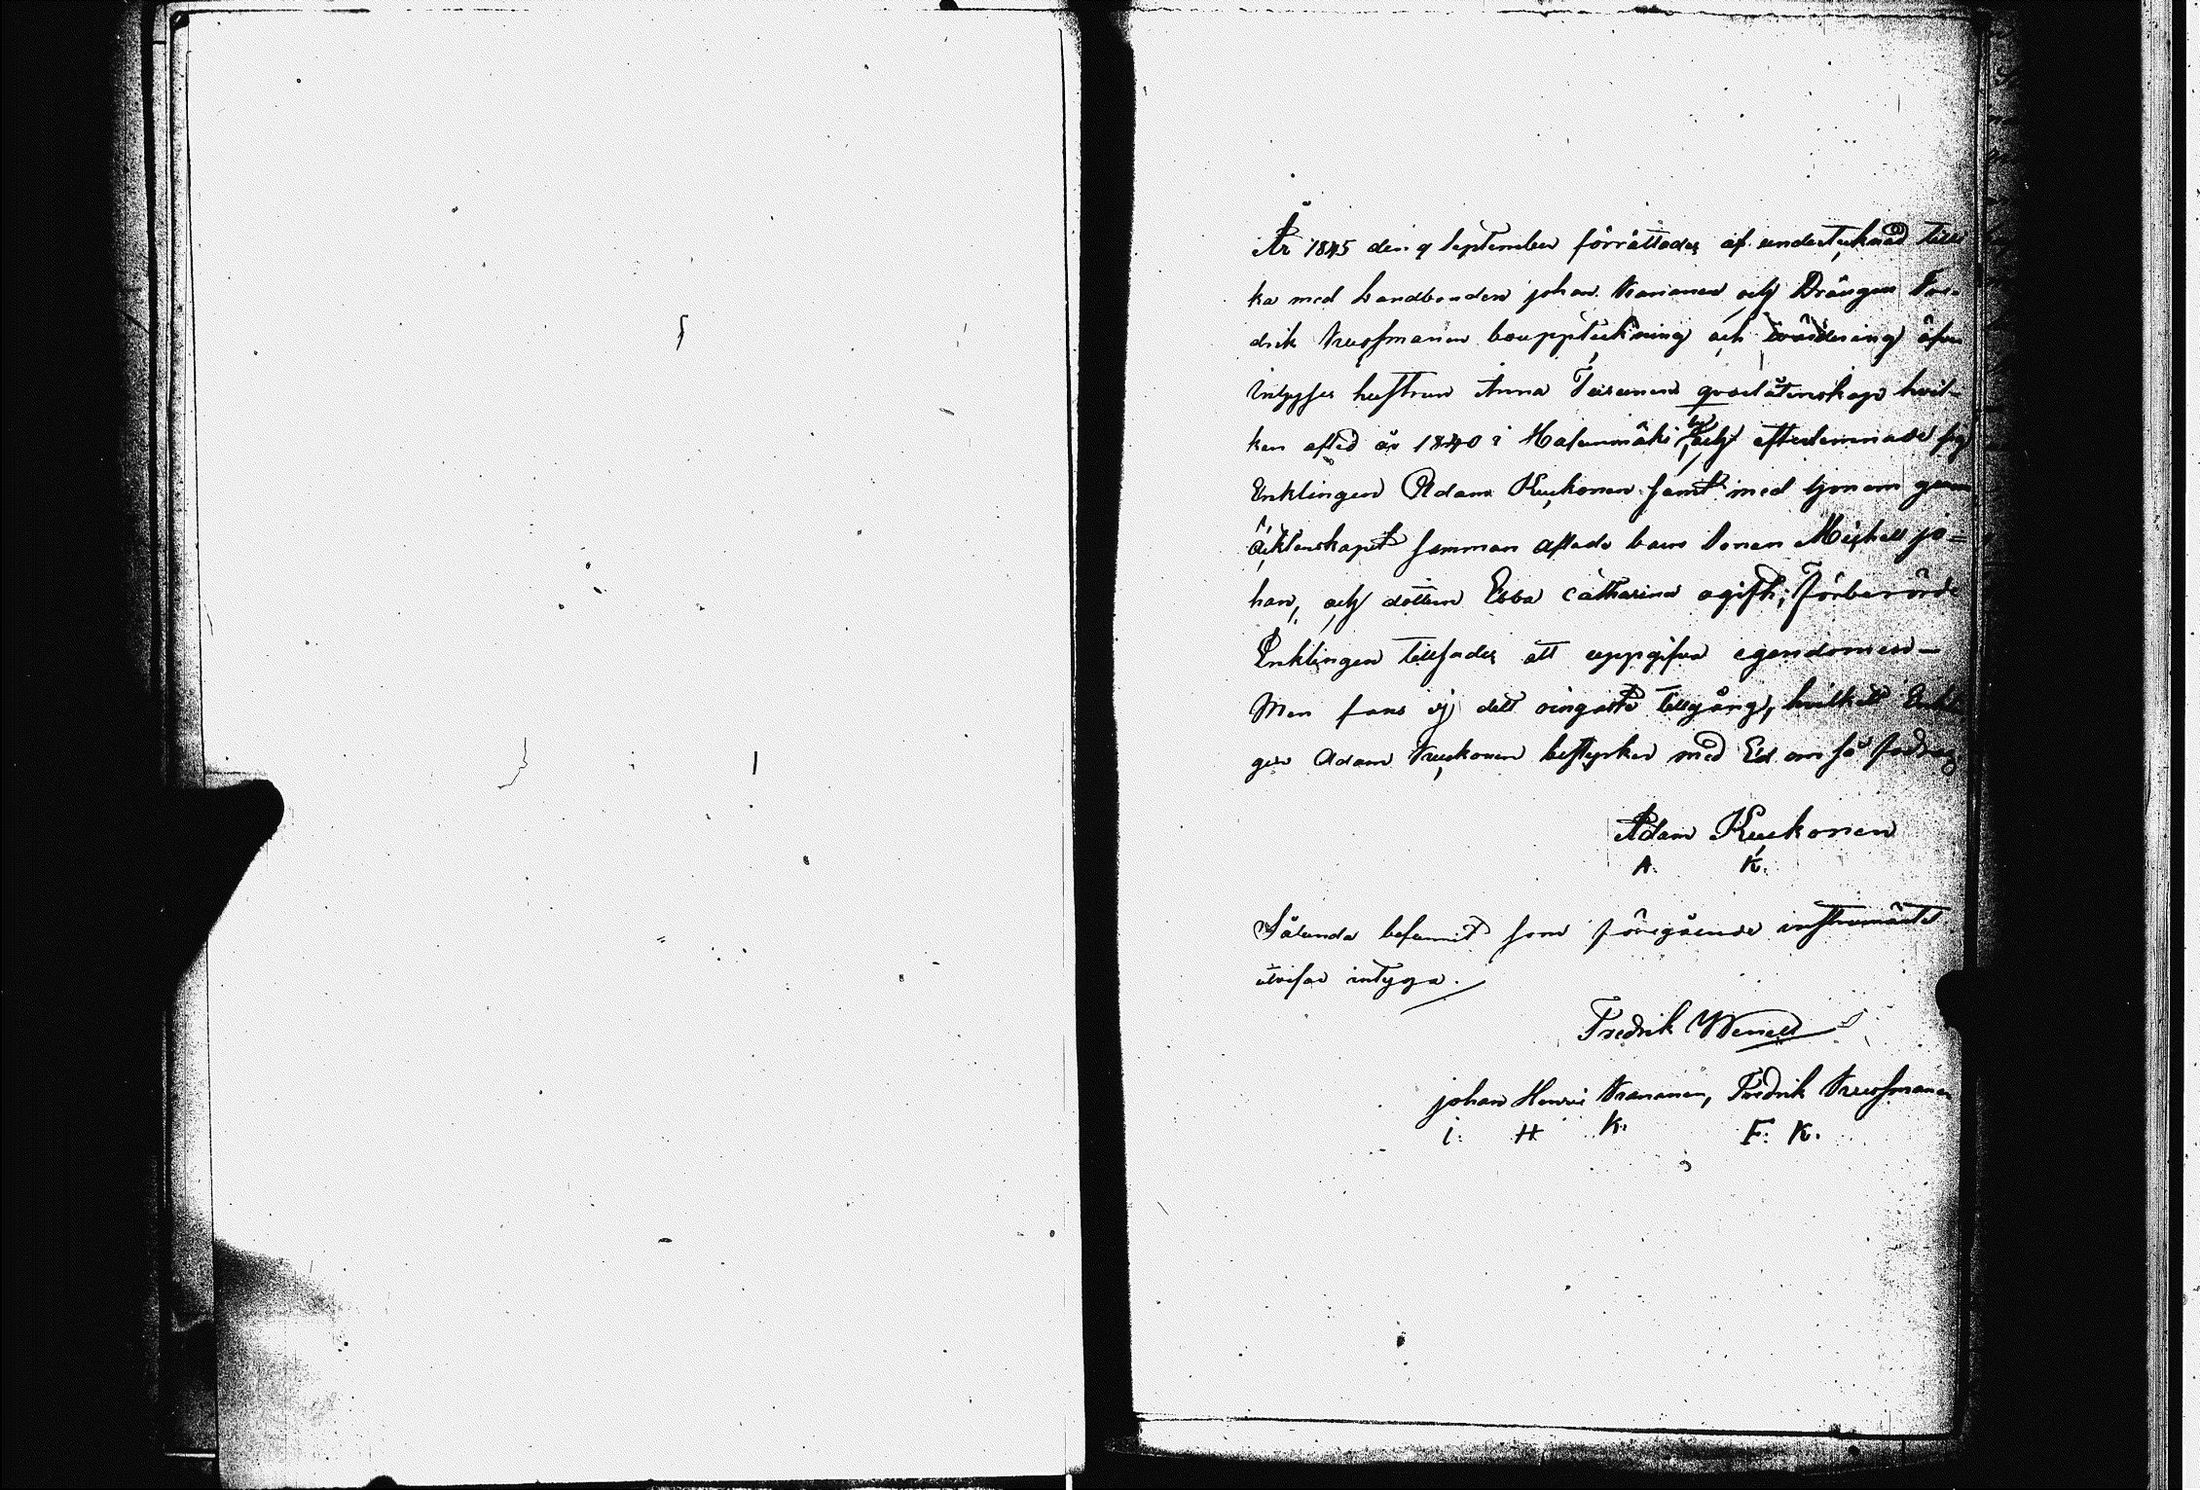 År 1845 den 9 September förrättades af undertecknad tilli
ka med Landbonden johan Kananen, och Drängen Fre-
drik Krussmanen bouppteckning och wärdering öfver
Inhyses hustrun Anna Teisenens qvarlåtenskap hvil-
ken afled år 1840 i Hafvumäki by och efterlemnade sig
Enklingen Adam Kuckonen samt med honom genom
äcktenskapet samman aflade barn Sonen Michell jo=
han, och dottren Ebba Catharina ogifft; förberörde
Enklingen tillsades att uppgifva egendomen—
Men fans ej dett ringaste tillgång, hvilkett Enklin
gen Adam Kuckonen bestyrker med Ed om så fodras
Adam Kuckonen
A. K.
Sålunda befunnit som föregående instrumänte
utvisar intyga.
Fredrik Wenell
johan Henric Kananen, Fredrik Krussmanen
i: H K: F: K: